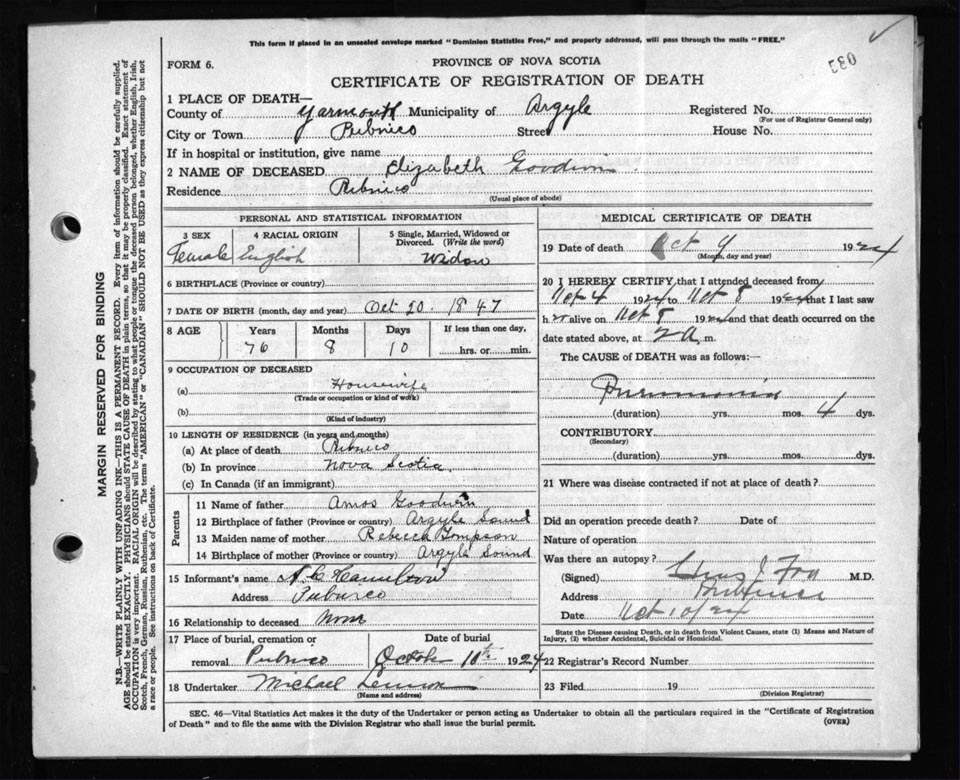 This form if placed in an unsealed envelope marked "Dominion Statistics Free," and properly addressed, will pass through the mails "FREE."
FORM 6.
PROVINCE OF NOVA SCOTIA
CERTIFICATE OF REGISTRATION OF DEATH
1 PLACE OF DEATH—
County of Yarmouth Municipality of Argyle Registered No.
(For use of Registrar General only)
City or Town Pubnico Street House No.
If in hospital or institution, give name
2 NAME OF DECEASED Elizabeth Goodwin
Residence Pubnico
(Usual place of abode)
PERSONAL AND STATISTICAL INFORMATION
3 SEX 4 RACIAL ORIGIN 5 Single, Married, Widowed or Divorced. (Write the word)
Female English Widow
6 BIRTHPLACE (Province or country)
7 DATE OF BIRTH (month, day and year) Oct 20 1847
8 AGE Years Months Days If less than one day,
76 8 10 hrs. or min.
9 OCCUPATION OF DECEASED
(a) Housewife
(Trade or occupation or kind of work)
(b)
(Kind of industry)
10 LENGTH OF RESIDENCE (in years and months)
(a) At place of death Pubnico
(b) In province Nova Scotia
(c) In Canada (if an immigrant)
Parents
11 Name of father Amos Goodwin
12 Birthplace of father (Province or country) Argyle Sound
13 Maiden name of mother Rebecca
14 Birthplace of mother (Province or country) Argyle Sound
15 Informant's name Hamilton
Address Pubnico
16 Relationship to deceased None
17 Place of burial, cremation or removal Pubnico
Date of burial October 10th 1924
18 Undertaker Michael Lennox
(Name and address)
MEDICAL CERTIFICATE OF DEATH
19 Date of death Oct 9 1924
(Month, day and year)
20 I HEREBY CERTIFY that I attended deceased from
Oct 4 1924 to Oct 8 1924 that I last saw
her alive on Oct 8 1924 and that death occurred on the
date stated above, at 2 A. m.
The CAUSE of DEATH was as follows:
Pneumonia
(duration) yrs. mos. 4 dys.
CONTRIBUTORY
(Secondary)
(duration) yrs. mos. dys.
21 Where was disease contracted if not at place of death?
Did an operation precede death? Date of
Nature of operation
Was there an autopsy?
(Signed) M.D.
Address Pubnico
Date Oct 10/24
State the Disease causing Death, or in death from Violent Causes, state (1) Means and Nature of Injury, (ii) whether Accidental, Suicidal or Homicidal.
22 Registrar's Record Number
23 Filed 19
(Division Registrar)
SEC. 46—Vital Statistics Act makes it the duty of the Undertaker or person acting as Undertaker to obtain all the particulars required in the "Certificate of Registration
of Death" and to file the same with the Division Registrar who shall issue the burial permit.
(OVER)
MARGIN RESERVED FOR BINDING
N.B.—WRITE PLAINLY WITH UNFADING INK—THIS IS A PERMANENT RECORD. Every item of information should be carefully supplied.
AGE should be stated EXACTLY. PHYSICIANS should STATE CAUSE OF DEATH in plain terms, so that it may be properly classified. Exact statement of
OCCUPATION is very important. RACIAL ORIGIN will be described by stating to what people or tongue the deceased person belonged, whether English, Irish,
Scotch, French, German, Russian, Ruthenian, etc. The terms "AMERICAN" or "CANADIAN" SHOULD NOT BE USED as they express citizenship but not
a race or people. See instructions on back of Certificate.